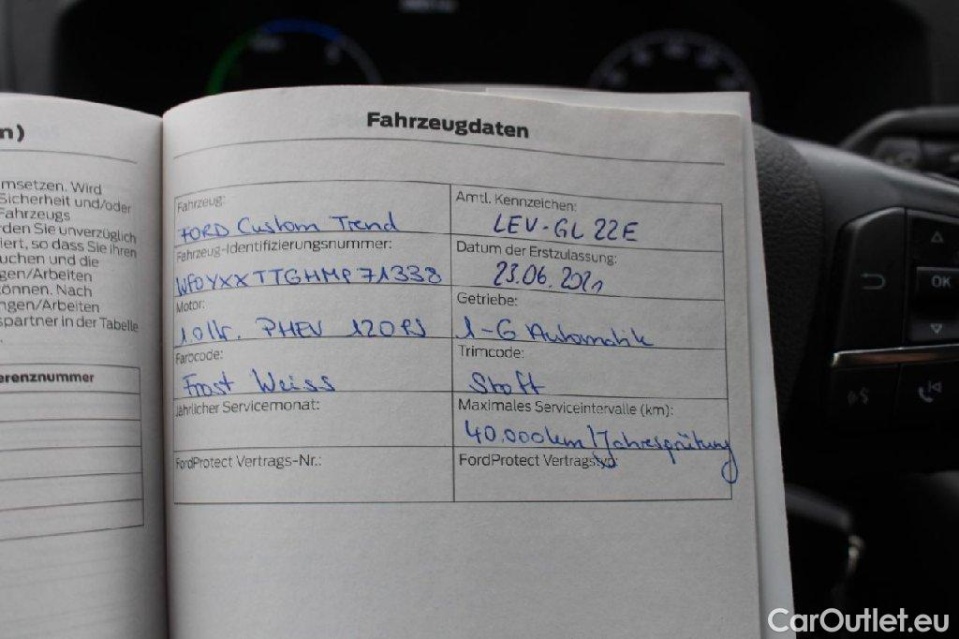 n)
msetzen. Wird
Sicherheit und/oder
Fahrzeugs
rden Sie unverzüglich
iert, so dass Sie ihren
uchen und die
gen/Arbeiten
können. Nach
ngen/Arbeiten
spartner in der Tabelle
erenznummer
Fahrzeugdaten
Fahrzeug:
FORD Custom Trend
Amtl. Kennzeichen:
LEV-GL 22E
Fahrzeug-Identifizierungsnummer:
WF0YXXTTGHMP71338
Datum der Erstzulassung:
23.06.2021
Motor:
1.0 ltr. PHEV 120PS
Getriebe:
1-G Automatik
Farbcode:
Frost Weiss
Trimcode:
Stoff
Jährlicher Servicemonat:
Maximales Serviceintervalle (km):
40.000km/Jahresprüfung
FordProtect Vertrags-Nr.:
FordProtect Vertragstyp:
OK
CarOutlet.eu